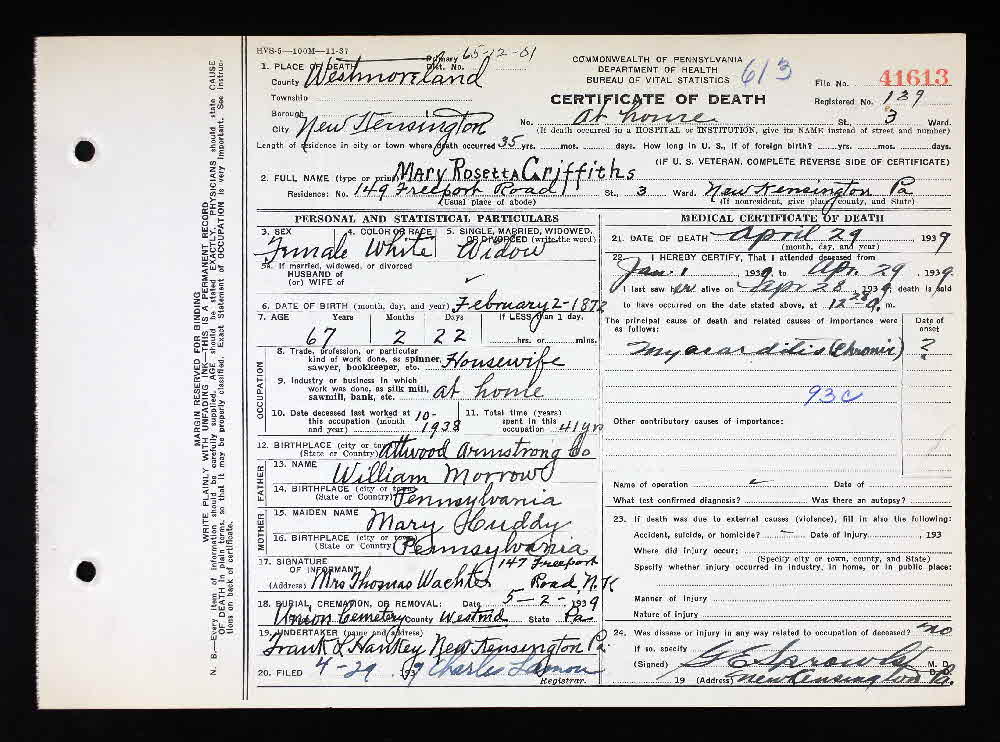 HVS-5—100M—11-37
Primary Dist. No. 65-12-01
1. PLACE OF DEATH
County Westmoreland
Township
Borough
City New Kensington
COMMONWEALTH OF PENNSYLVANIA
DEPARTMENT OF HEALTH
BUREAU OF VITAL STATISTICS
613
File No. 41613
CERTIFICATE OF DEATH
Registered No. 139
No. at home St., 3 Ward.
(If death occurred in a HOSPITAL or INSTITUTION, give its NAME instead of street and number)
Length of residence in city or town where death occurred 35 yrs. mos. days. How long in U. S., if of foreign birth? yrs. mos. days.
(IF U. S. VETERAN, COMPLETE REVERSE SIDE OF CERTIFICATE)
2. FULL NAME (type or print) Mary Rosetta Griffiths
Residence: No. 149 Freeport Road St., 3 Ward, New Kensington Pa
(Usual place of abode) (If nonresident, give place, county, and State)
PERSONAL AND STATISTICAL PARTICULARS
3. SEX Female
4. COLOR OR RACE White
5. SINGLE, MARRIED, WIDOWED, OR DIVORCED (write the word) Widow
5a. If married, widowed, or divorced
HUSBAND of
(or) WIFE of
6. DATE OF BIRTH (month, day, and year) February 2-1872
7. AGE Years Months Days If LESS than 1 day,
67 2 22 hrs. or mins.
OCCUPATION
8. Trade, profession, or particular kind of work done, as spinner, sawyer, bookkeeper, etc. Housewife
9. Industry or business in which work was done, as silk mill, sawmill, bank, etc. at home
10. Date deceased last worked at this occupation (month and year) 10-1938
11. Total time (years) spent in this occupation 41 yrs
12. BIRTHPLACE (city or town) (State or Country) Attwood Armstrong Co
FATHER
13. NAME William Morrow
14. BIRTHPLACE (city or town) (State or Country) Pennsylvania
MOTHER
15. MAIDEN NAME Mary Huddy
16. BIRTHPLACE (city or town) (State or Country) Pennsylvania
17. SIGNATURE OF INFORMANT Mrs Thomas Wachter
(Address) 147 Freeport Road, N.K
18. BURIAL, CREMATION, OR REMOVAL: Date 5-2-1939
Union Cemetery County Westmd. State Pa
19. UNDERTAKER (name and address)
Frank L Hankey New Kensington Pa.
20. FILED 4-29 1939 Charles Lamon
Registrar.
MEDICAL CERTIFICATE OF DEATH
21. DATE OF DEATH April 29 1939
(month, day, and year)
22. I HEREBY CERTIFY, That I attended deceased from
Jan. 1 1939, to Apr. 29, 1939.
I last saw her alive on Apr 28 1939, death is said
to have occurred on the date stated above, at 12 28 a. m.
The principal cause of death and related causes of importance were as follows:
Date of onset
Myocarditis (Chronic) ?
93c
Other contributory causes of importance:
Name of operation Date of
What test confirmed diagnosis? Was there an autopsy?
23. If death was due to external causes (violence), fill in also the following:
Accident, suicide, or homicide? Date of injury , 193
Where did injury occur:
(Specify city or town, county, and State)
Specify whether injury occurred in industry, in home, or in public place:
Manner of injury
Nature of injury
24. Was disease or injury in any way related to occupation of deceased? no
If so, specify
(Signed) G E Sprowls M. D.
19 (Address) New Kensington Pa.
MARGIN RESERVED FOR BINDING
WRITE PLAINLY WITH UNFADING INK—THIS IS A PERMANENT RECORD
N. B.—Every item of information should be carefully supplied. AGE should be stated EXACTLY. PHYSICIANS should state CAUSE
OF DEATH in plain terms, so that it may be properly classified. Exact Statement of OCCUPATION is very important. See instruc-
tions on back of certificate.